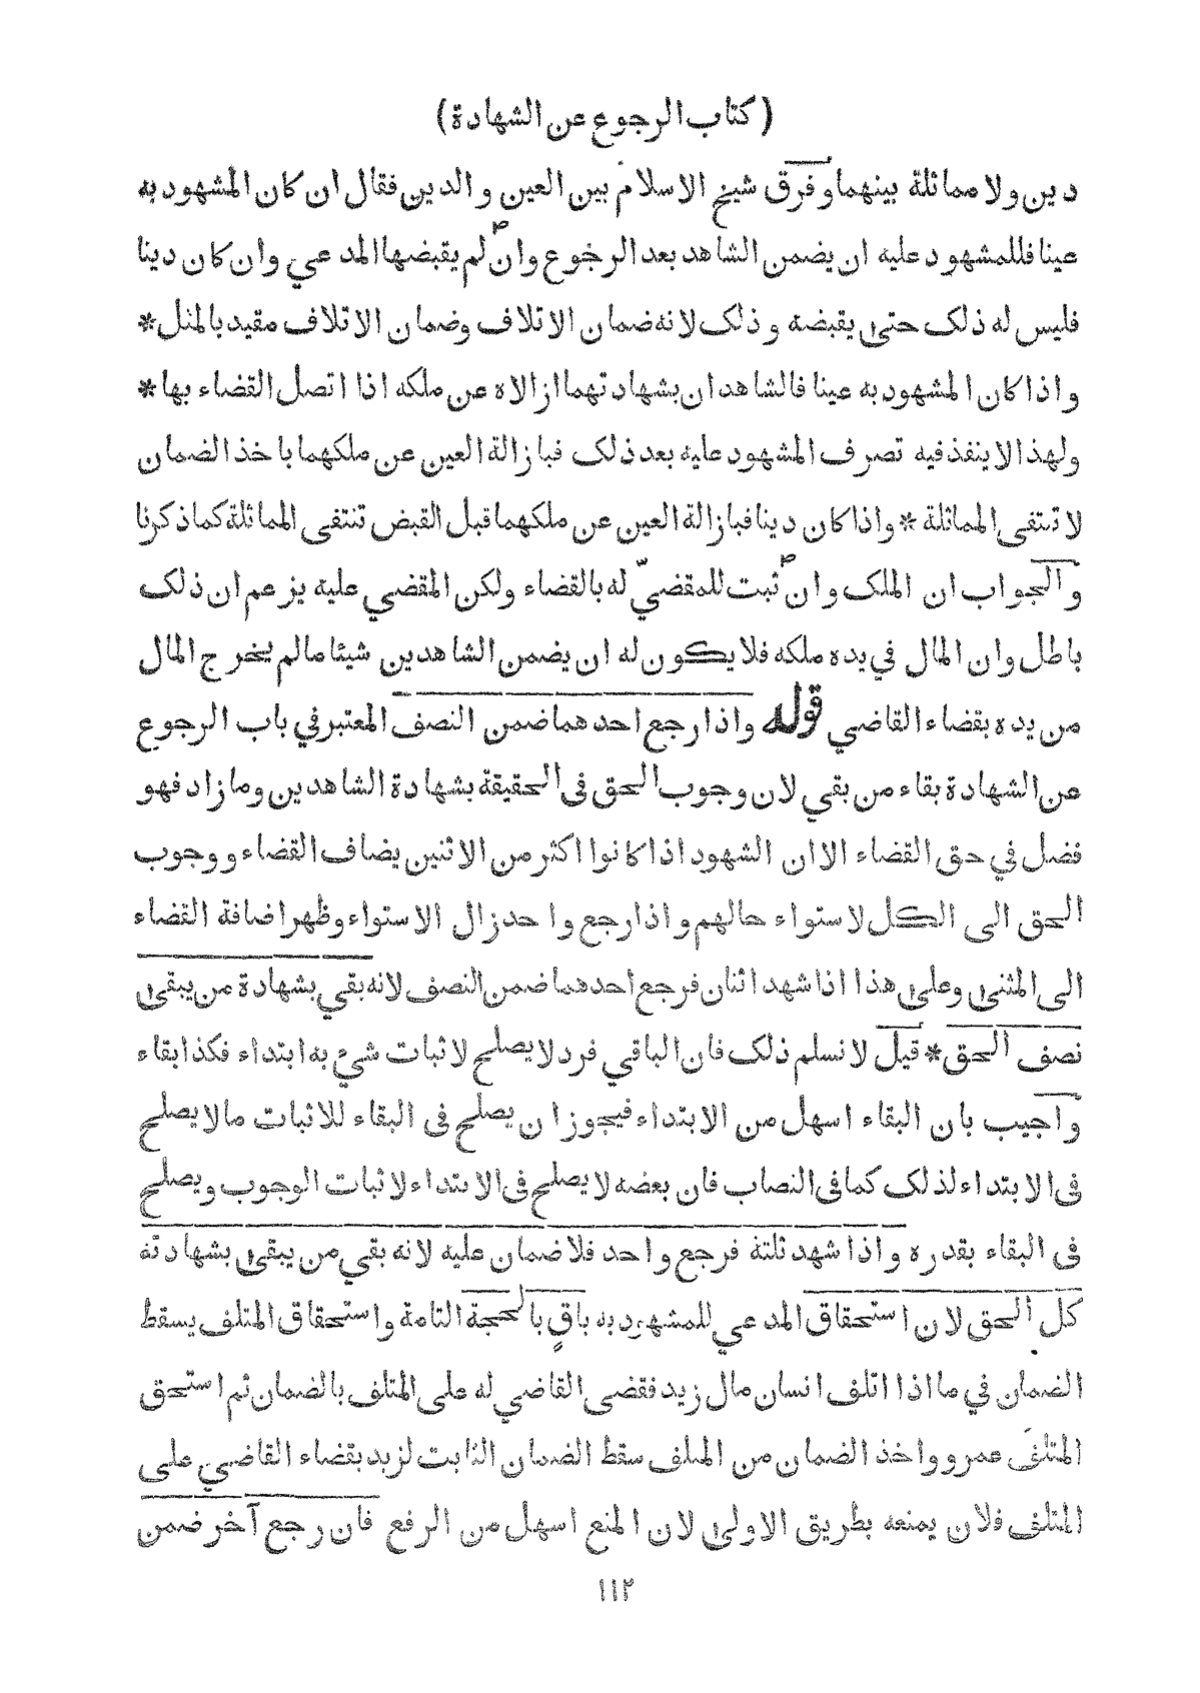 ( كتاب الرجوع عن الشهادة )
دين ولا مماثلة بينهما وفرق شيخ الاسلام بين العين والدين فقال ان كان المشهود به
عينا فللمشهود عليه ان يضمن الشاهد بعد الرجوع وان لم يقبضها المدعي وان كان دينا
فليس له ذلك حتى يقبضه وذلك لانه ضمان الاتلاف وضمان الاتلاف مقيد بالمثل *
واذا كان المشهود به عينا فالشاهدان بشهادتهما ازالاه عن ملكه اذا اتصل القضاء بها *
ولهذا لا ينفذ فيه تصرف المشهود عليه بعد ذلك فبازالة العين عن ملكهما باخذ الضمان
لا تنتفى المماثلة * واذا كان دينا فبازالة العين عن ملكهما قبل القبض تنتفى المماثلة كما ذكرنا
والجواب ان الملك وان ثبت للمقضيّ له بالقضاء ولكن المقضي عليه يزعم ان ذلك
باطل وان المال في يده ملكه فلا يكون له ان يضمن الشاهدين شيئا مالم يخرج المال
من يده بقضاء القاضي قوله واذا رجع احدهما ضمن النصف المعتبر في باب الرجوع
عن الشهادة بقاء من بقي لان وجوب الحق فى الحقيقة بشهادة الشاهدين وما زاد فهو
فضل في حق القضاء الا ان الشهود اذا كانوا اكثر من الاثنين يضاف القضاء ووجوب
الحق الى الكل لاستواء حالهم واذا رجع واحد زال الاستواء وظهر اضافة القضاء
الى المثنى وعلى هذا اذا شهد اثنان فرجع احدهما ضمن النصف لانه بقي بشهادة من يبقى
نصف الحق * قيل لا نسلم ذلك فان الباقي فرد لا يصلح لاثبات شيء به ابتداء فكذا بقاء
واجيب بان البقاء اسهل من الابتداء فيجوز ان يصلح فى البقاء للاثبات مالا يصلح
فى الابتداء لذلك كما فى النصاب فان بعضه لا يصلح فى الابتداء لاثبات الوجوب ويصلح
فى البقاء بقدره واذا شهد ثلثة فرجع واحد فلا ضمان عليه لانه بقي من يبقى بشهادته
كل الحق لان استحقاق المدعي للمشهود به باقٍ بالحجة التامة واستحقاق المتلف يسقط
الضمان في ما اذا اتلف انسان مال زيد فقضى القاضي له على المتلف بالضمان ثم استحق
المتلَف عمرو واخذ الضمان من المتلف سقط الضمان الثابت لزيد بقضاء القاضي على
المتلف فلان يمنعه بطريق الاولى لان المنع اسهل من الرفع فان رجع آخر ضمن
١١٢